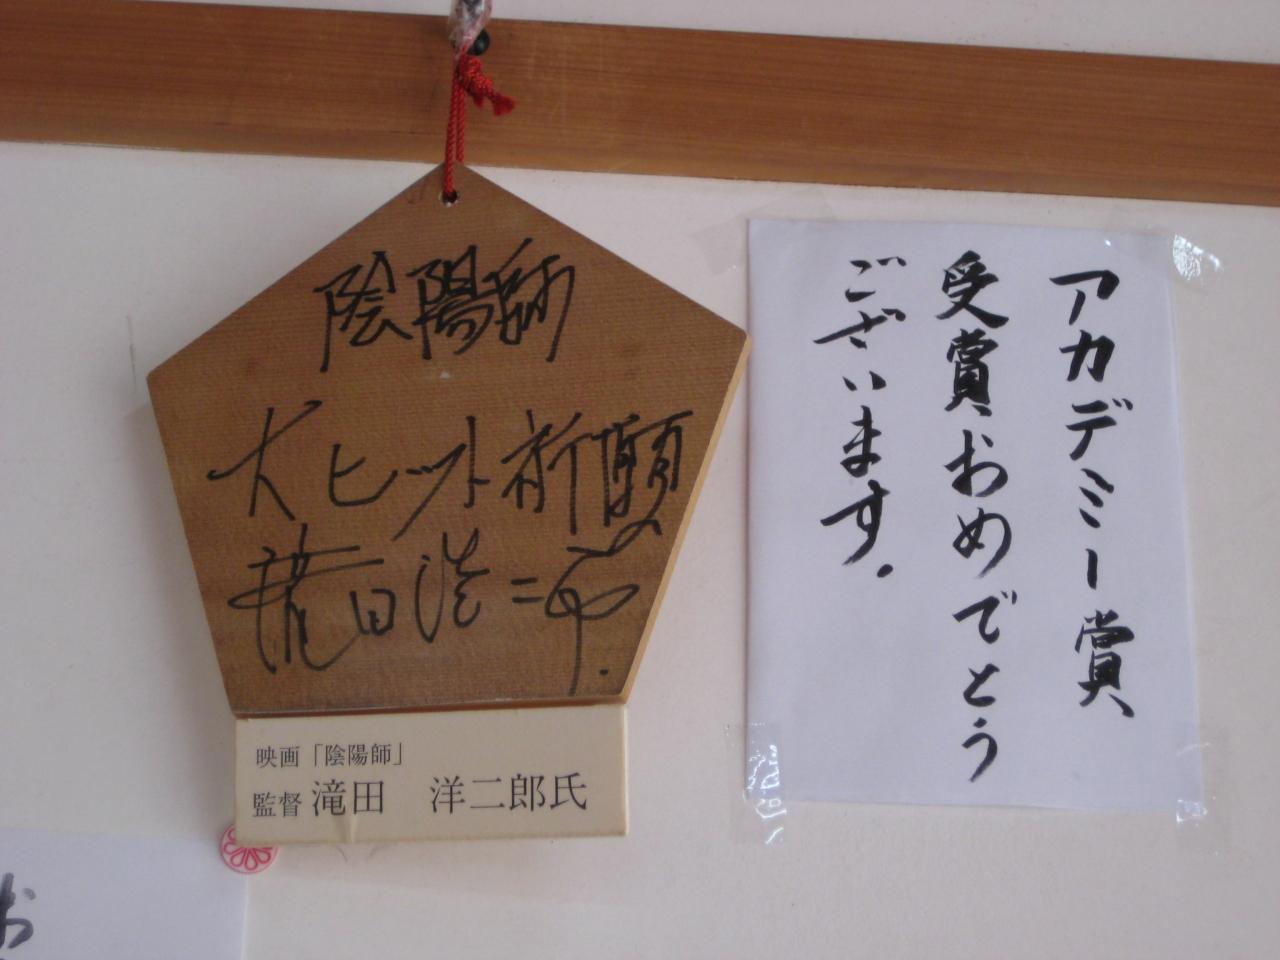 陰陽師
大ヒット祈願
滝田洋二郎
映画「陰陽師」
監督 滝田　洋二郎氏
アカデミー賞
受賞おめでとう
ございます.
お